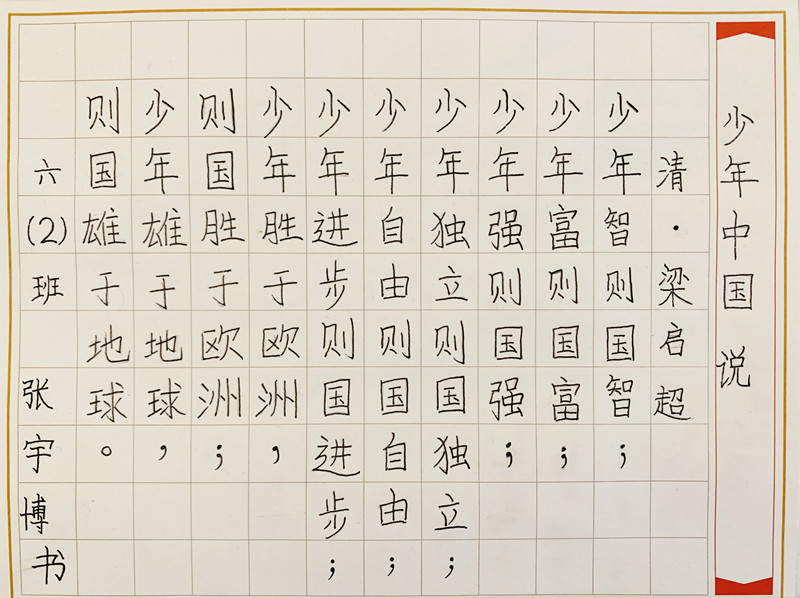 少年中国说
清·梁启超
少年智则国智；
少年富则国富；
少年强则国强；
少年独立则国独立；
少年自由则国自由；
少年进步则国进步；
少年胜于欧洲，
则国胜于欧洲；
少年雄于地球，
则国雄于地球。
六(2)班 张宇博书